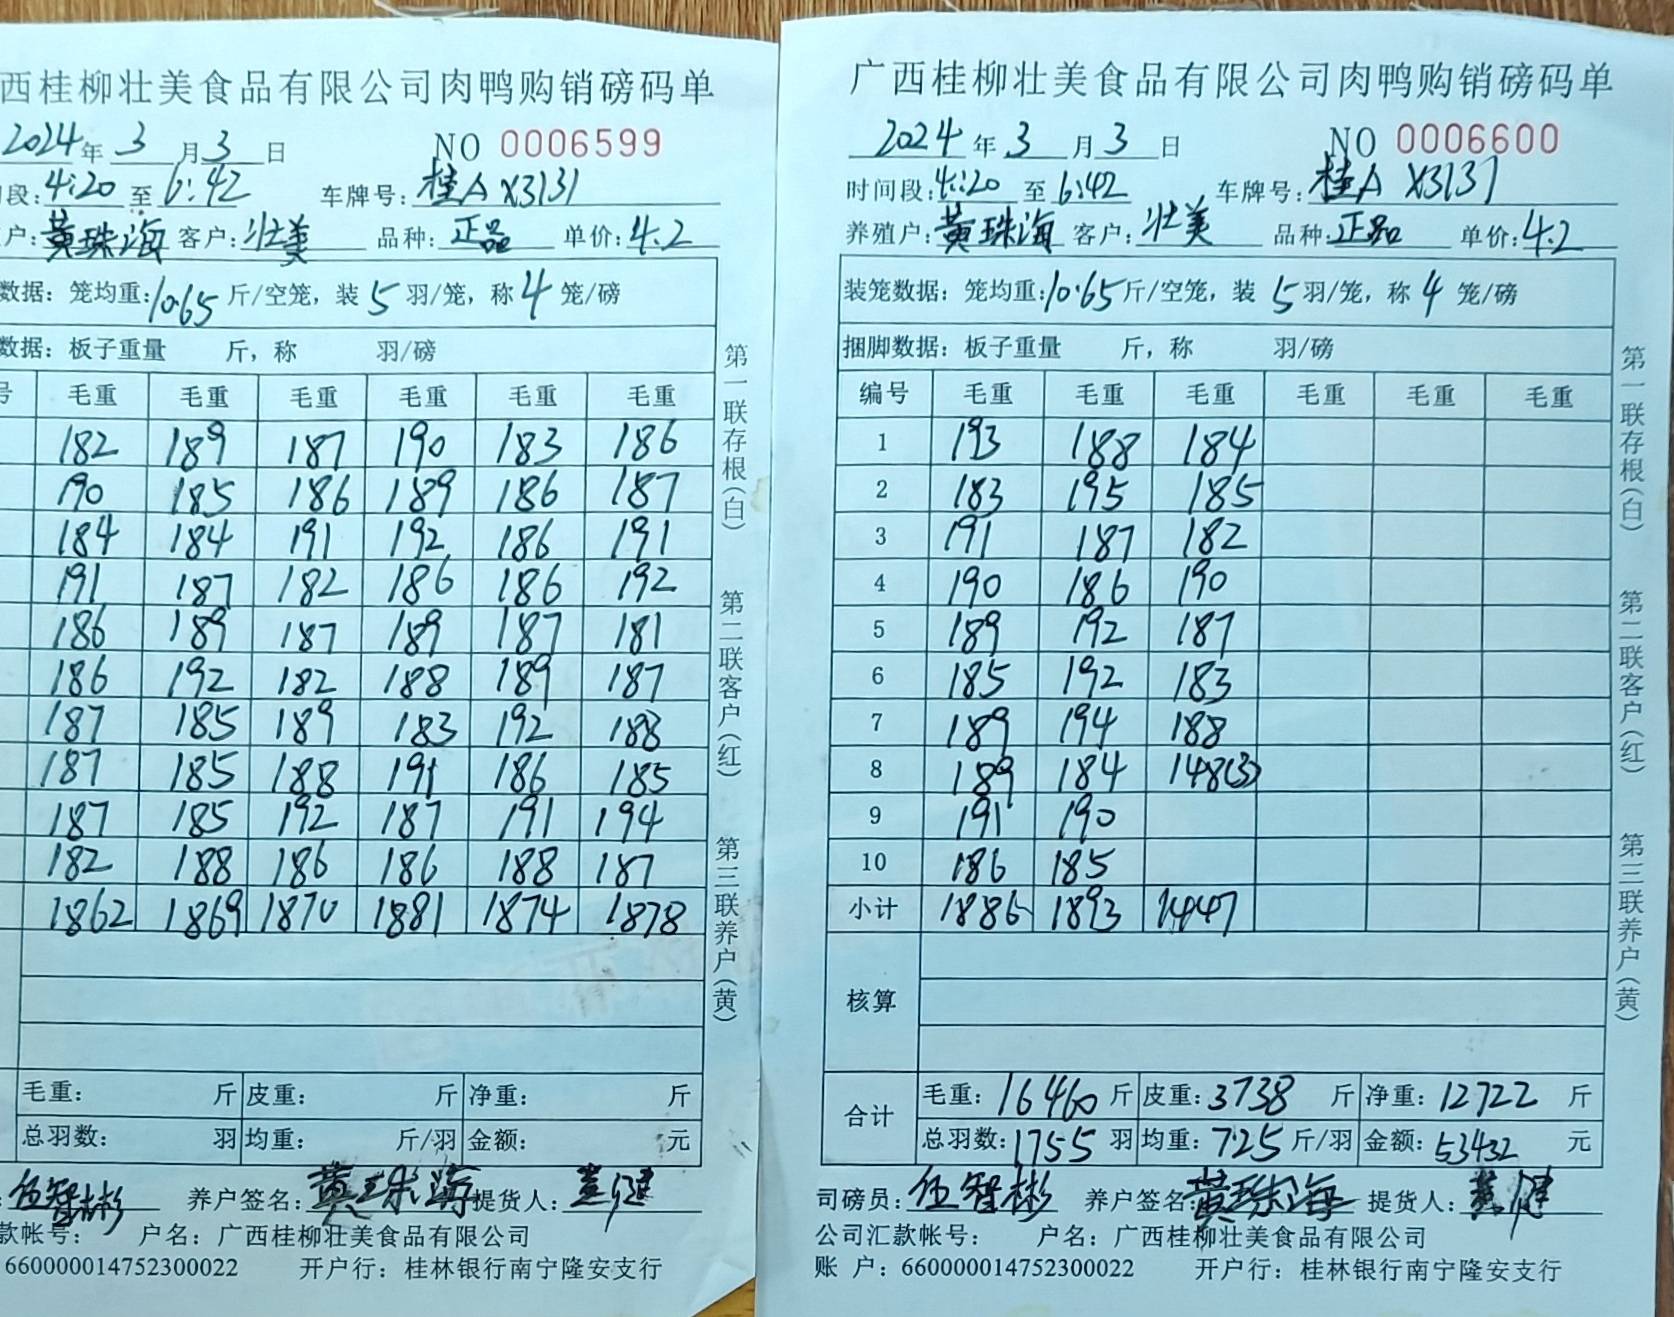 西桂柳壮美食品有限公司肉鸭购销磅码单
2024年 3 月 3 日 NO 0006599
段:4:20 至 6:42 车牌号:桂A X3131
户:黄珠海 客户:壮美 品种:正品 单价:4.2
数据: 笼均重:10.65 斤/空笼, 装 5 羽/笼, 称 4 笼/磅
数据: 板子重量 斤, 称 羽/磅
号 毛重 毛重 毛重 毛重 毛重 毛重
182 189 187 190 183 186
190 185 186 189 186 187
184 184 191 192 186 191
191 187 182 186 186 192
186 189 187 189 187 181
186 192 182 188 189 187
187 185 189 183 192 188
187 185 188 191 186 185
187 185 192 187 191 194
182 188 186 186 188 187
1862 1869 1870 1881 1874 1878
毛重: 斤 皮重: 斤 净重: 斤
总羽数: 羽 均重: 斤/羽 金额: 元
:伍智彬 养户签名:黄珠海 提货人:黄健
款帐号: 户名: 广西桂柳壮美食品有限公司
660000014752300022 开户行: 桂林银行南宁隆安支行
第一联存根(白) 第二联客户(红) 第三联养户(黄)
广西桂柳壮美食品有限公司肉鸭购销磅码单
2024 年 3 月 3 日 NO 0006600
时间段:4:20 至 6:42 车牌号:桂A X3131
养殖户:黄珠海 客户:壮美 品种:正品 单价:4.2
装笼数据: 笼均重:10.65 斤/空笼, 装 5 羽/笼, 称 4 笼/磅
捆脚数据: 板子重量 斤, 称 羽/磅
编号 毛重 毛重 毛重 毛重 毛重 毛重
1 193 188 184
2 183 195 185
3 191 187 182
4 190 186 190
5 189 192 187
6 185 192 183
7 189 194 188
8 189 184 148(3)
9 191 190
10 186 185
小计 1886 1893 1447
核算
合计
毛重: 16460 斤 皮重: 3738 斤 净重: 12722 斤
总羽数: 1755 羽 均重: 7.25 斤/羽 金额: 53432 元
司磅员:伍智彬 养户签名:黄珠海 提货人:黄健
公司汇款帐号: 户名: 广西桂柳壮美食品有限公司
账 户: 660000014752300022 开户行: 桂林银行南宁隆安支行
第一联存根(白) 第二联客户(红) 第三联养户(黄)